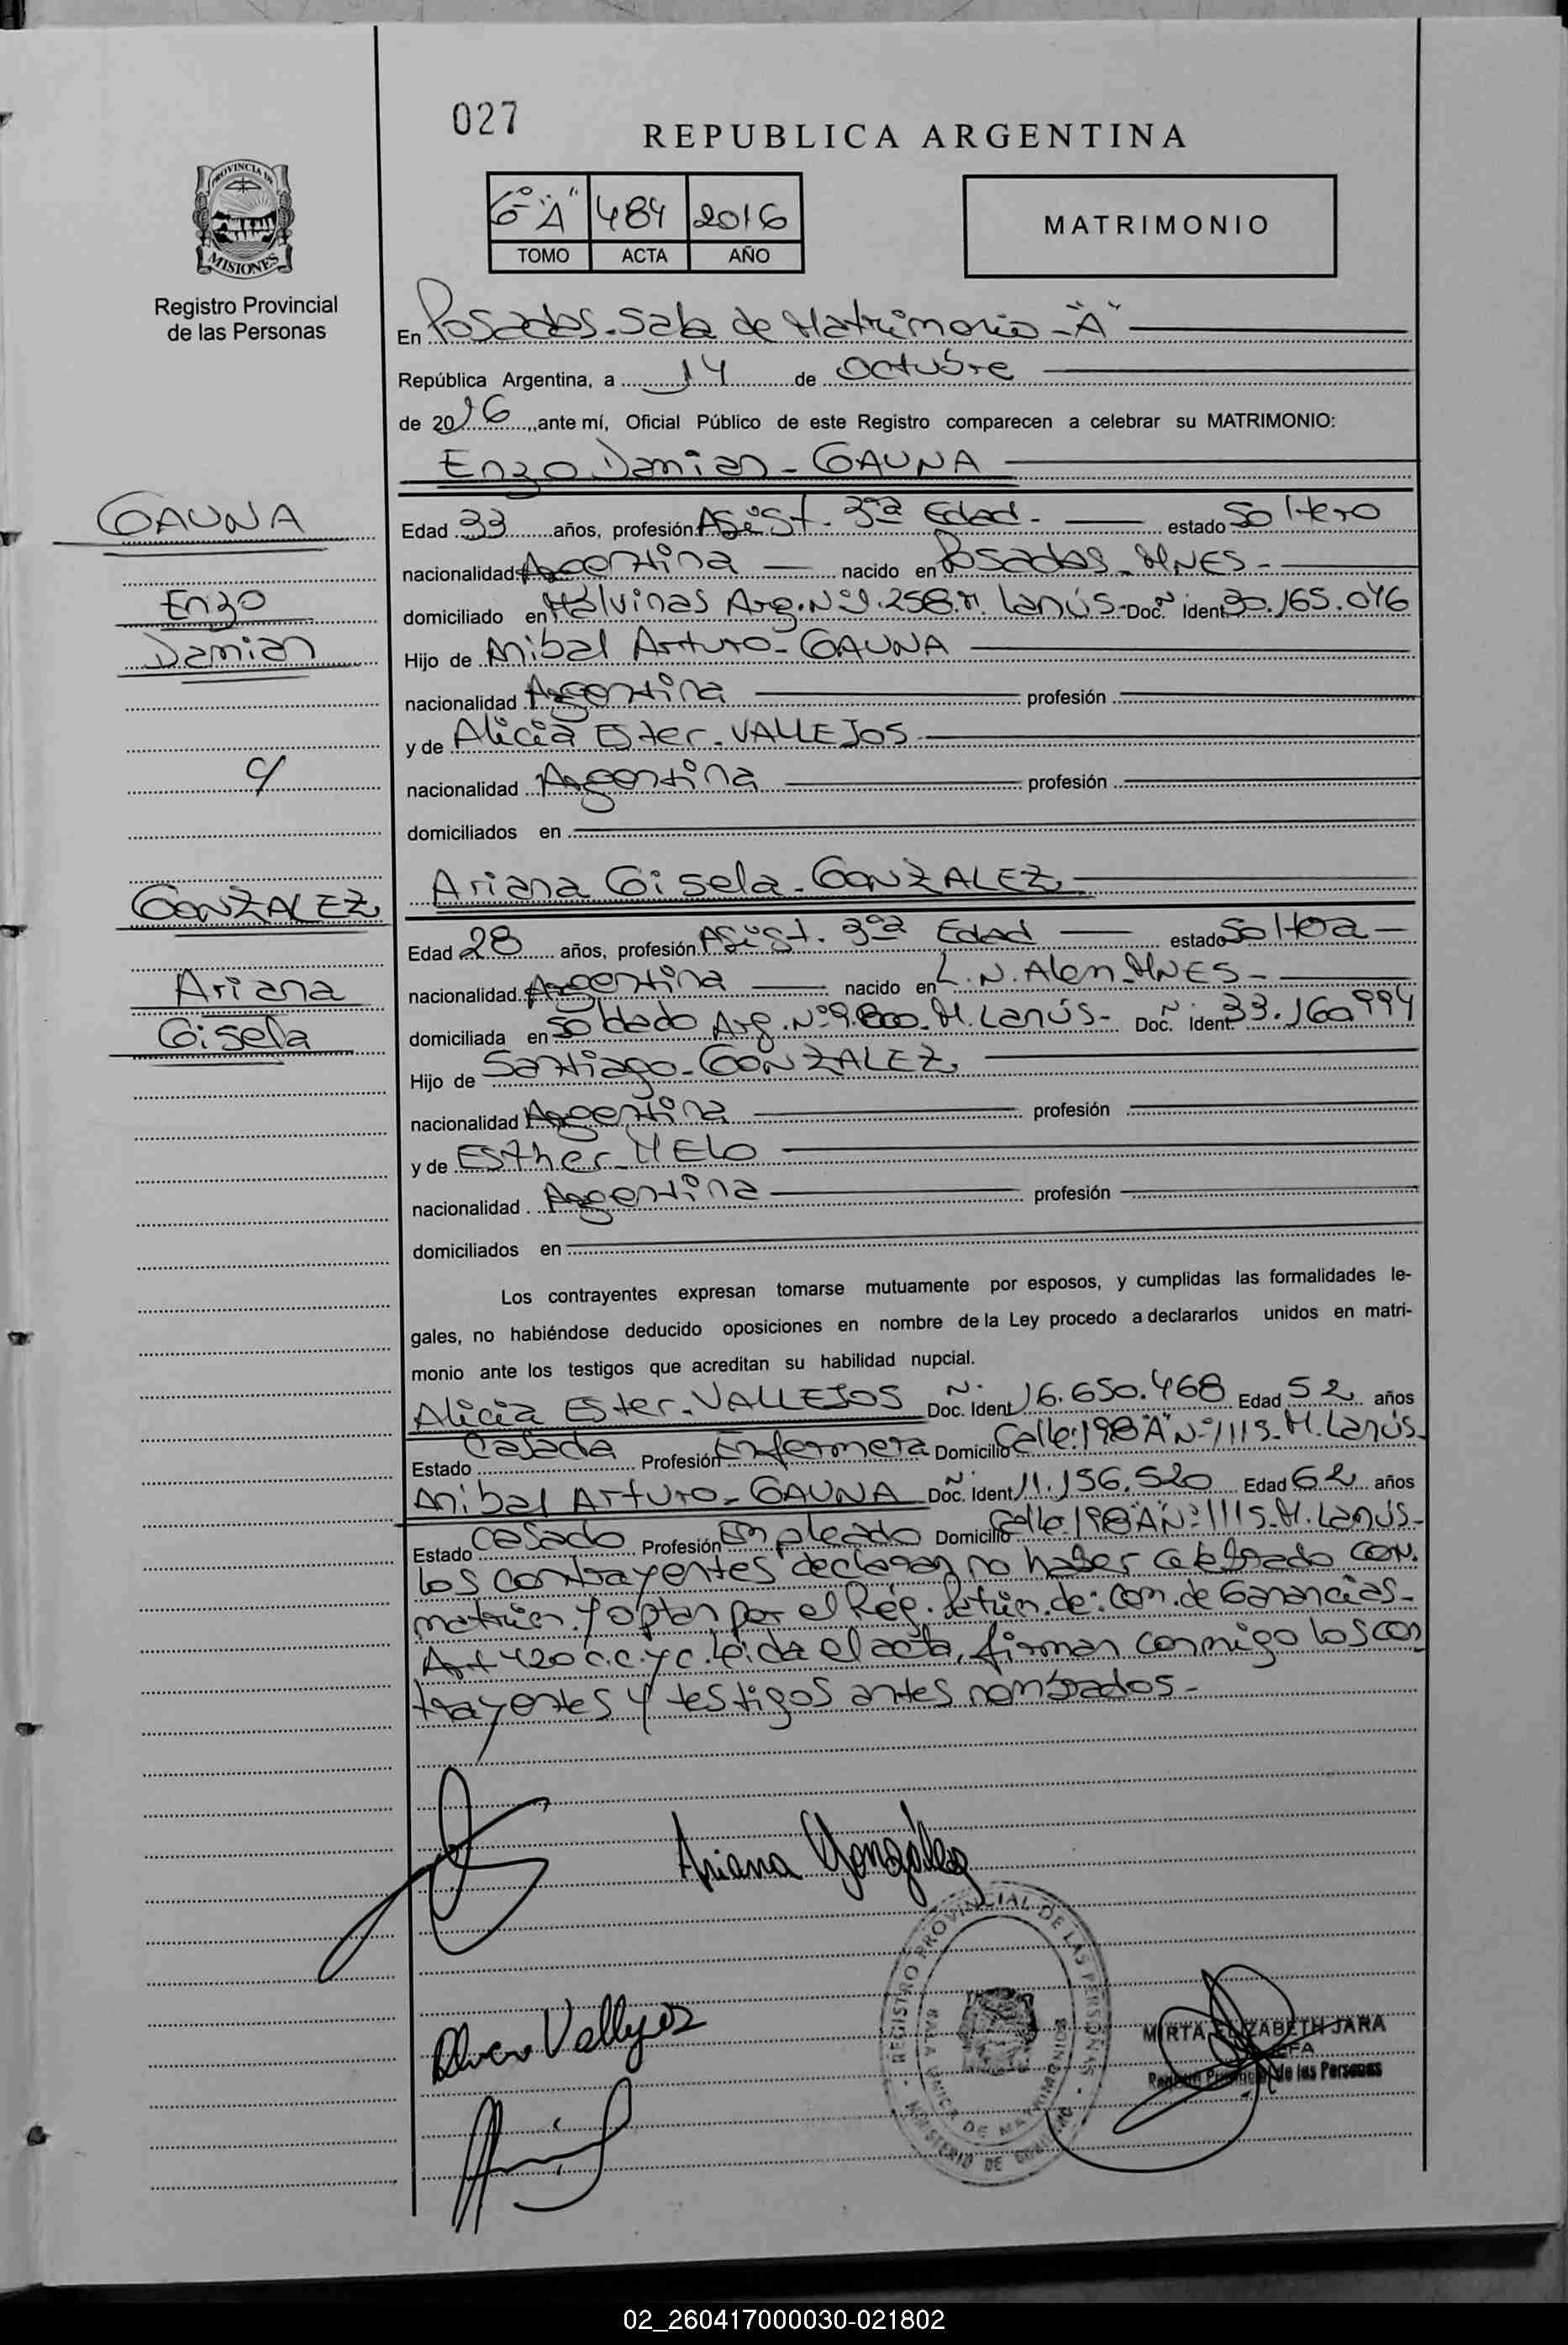 027
REPUBLICA ARGENTINA
6º "A" 484 2016
TOMO ACTA AÑO
MATRIMONIO
PROVINCIA DE
MISIONES
Registro Provincial
de las Personas
En Posadas. Sala de Matrimonio - "A"
República Argentina, a 14 de Octubre
de 2016, ante mí, Oficial Público de este Registro comparecen a celebrar su MATRIMONIO:
Enzo Damian - GAUNA
GAUNA
Enzo
Damian
c/
GONZALEZ
Ariana
Gisela
Edad 33 años, profesión Asist. 3ra Edad - estado Soltero
nacionalidad Argentina nacido en Posadas - MNES -
domiciliado en Malvinas Arg. Nº 9.258. M. Lanús - Doc. Ident 30.165.046
Hijo de Anibal Arturo - GAUNA
nacionalidad Argentina profesión
y de Alicia Ester - VALLEJOS
nacionalidad Argentina profesión
domiciliados en
Ariana Gisela - GONZALEZ
Edad 28 años, profesión Asist. 3ra Edad estado Soltera -
nacionalidad Argentina nacido en L. N. Alem - MNES -
domiciliada en Soldado Arg. Nº 9.800 - M. Lanús - Doc. Ident 33.160.994
Hijo de Santiago - GONZALEZ
nacionalidad Argentina profesión
y de Esther - MELO
nacionalidad Argentina profesión
domiciliados en
Los contrayentes expresan tomarse mutuamente por esposos, y cumplidas las formalidades le-
gales, no habiéndose deducido oposiciones en nombre de la Ley procedo a declararlos unidos en matri-
monio ante los testigos que acreditan su habilidad nupcial.
Alicia Ester - VALLEJOS Doc. Ident 16.650.468 Edad 52 años
Estado Casada Profesión Enfermera Domicilio Calle: 198 "A" Nº 1115 - M. Lanús -
Anibal Arturo - GAUNA Doc. Ident 11.156.520 Edad 62 años
Estado Casado Profesión Empleado Domicilio Calle 198 "A" Nº 1115 - M. Lanús -
los contrayentes declaran no haber celebrado con.
matrim. y optan por el Rég. Patrim. de: Com. de Ganancias -
Art 420 C.C. y C. leida el acta, firman conmigo los con
trayentes y testigos antes nombrados -
Ariana González
REGISTRO PROVINCIAL DE LAS PERSONAS
SALA UNICA DE MATRIMONIOS
MINISTERIO DE GOBIERNO
MIRTA ELIZABETH JARA
JEFA
Registro Provincial de las Personas
02_260417000030-021802